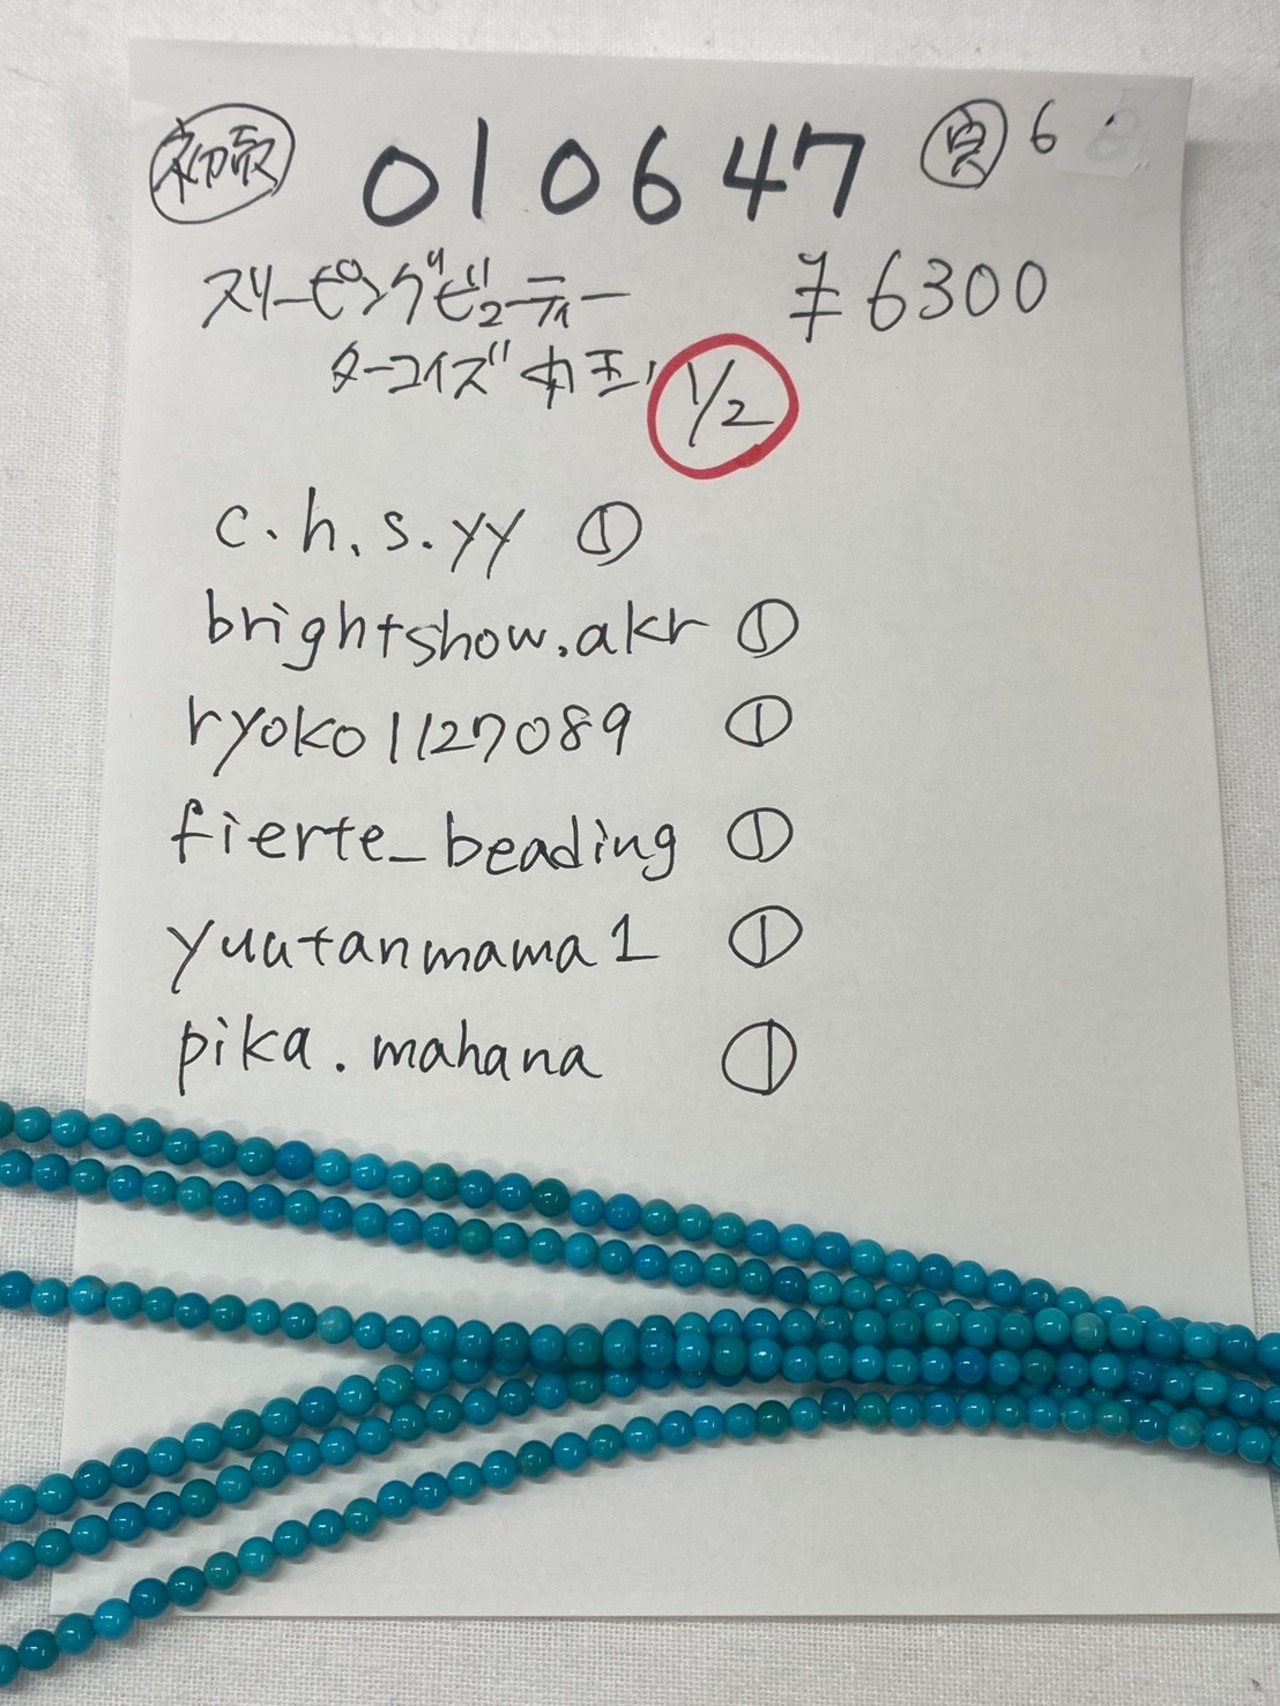 初売 010647 貝 6
スリーピングビューティー ¥6300
ターコイズ 丸玉 1/2
c.h.s.yy ①
brightshow.akr ①
ryoko1127089 ①
fierte_beading ①
yuutanmama1 ①
pika.mahana ①